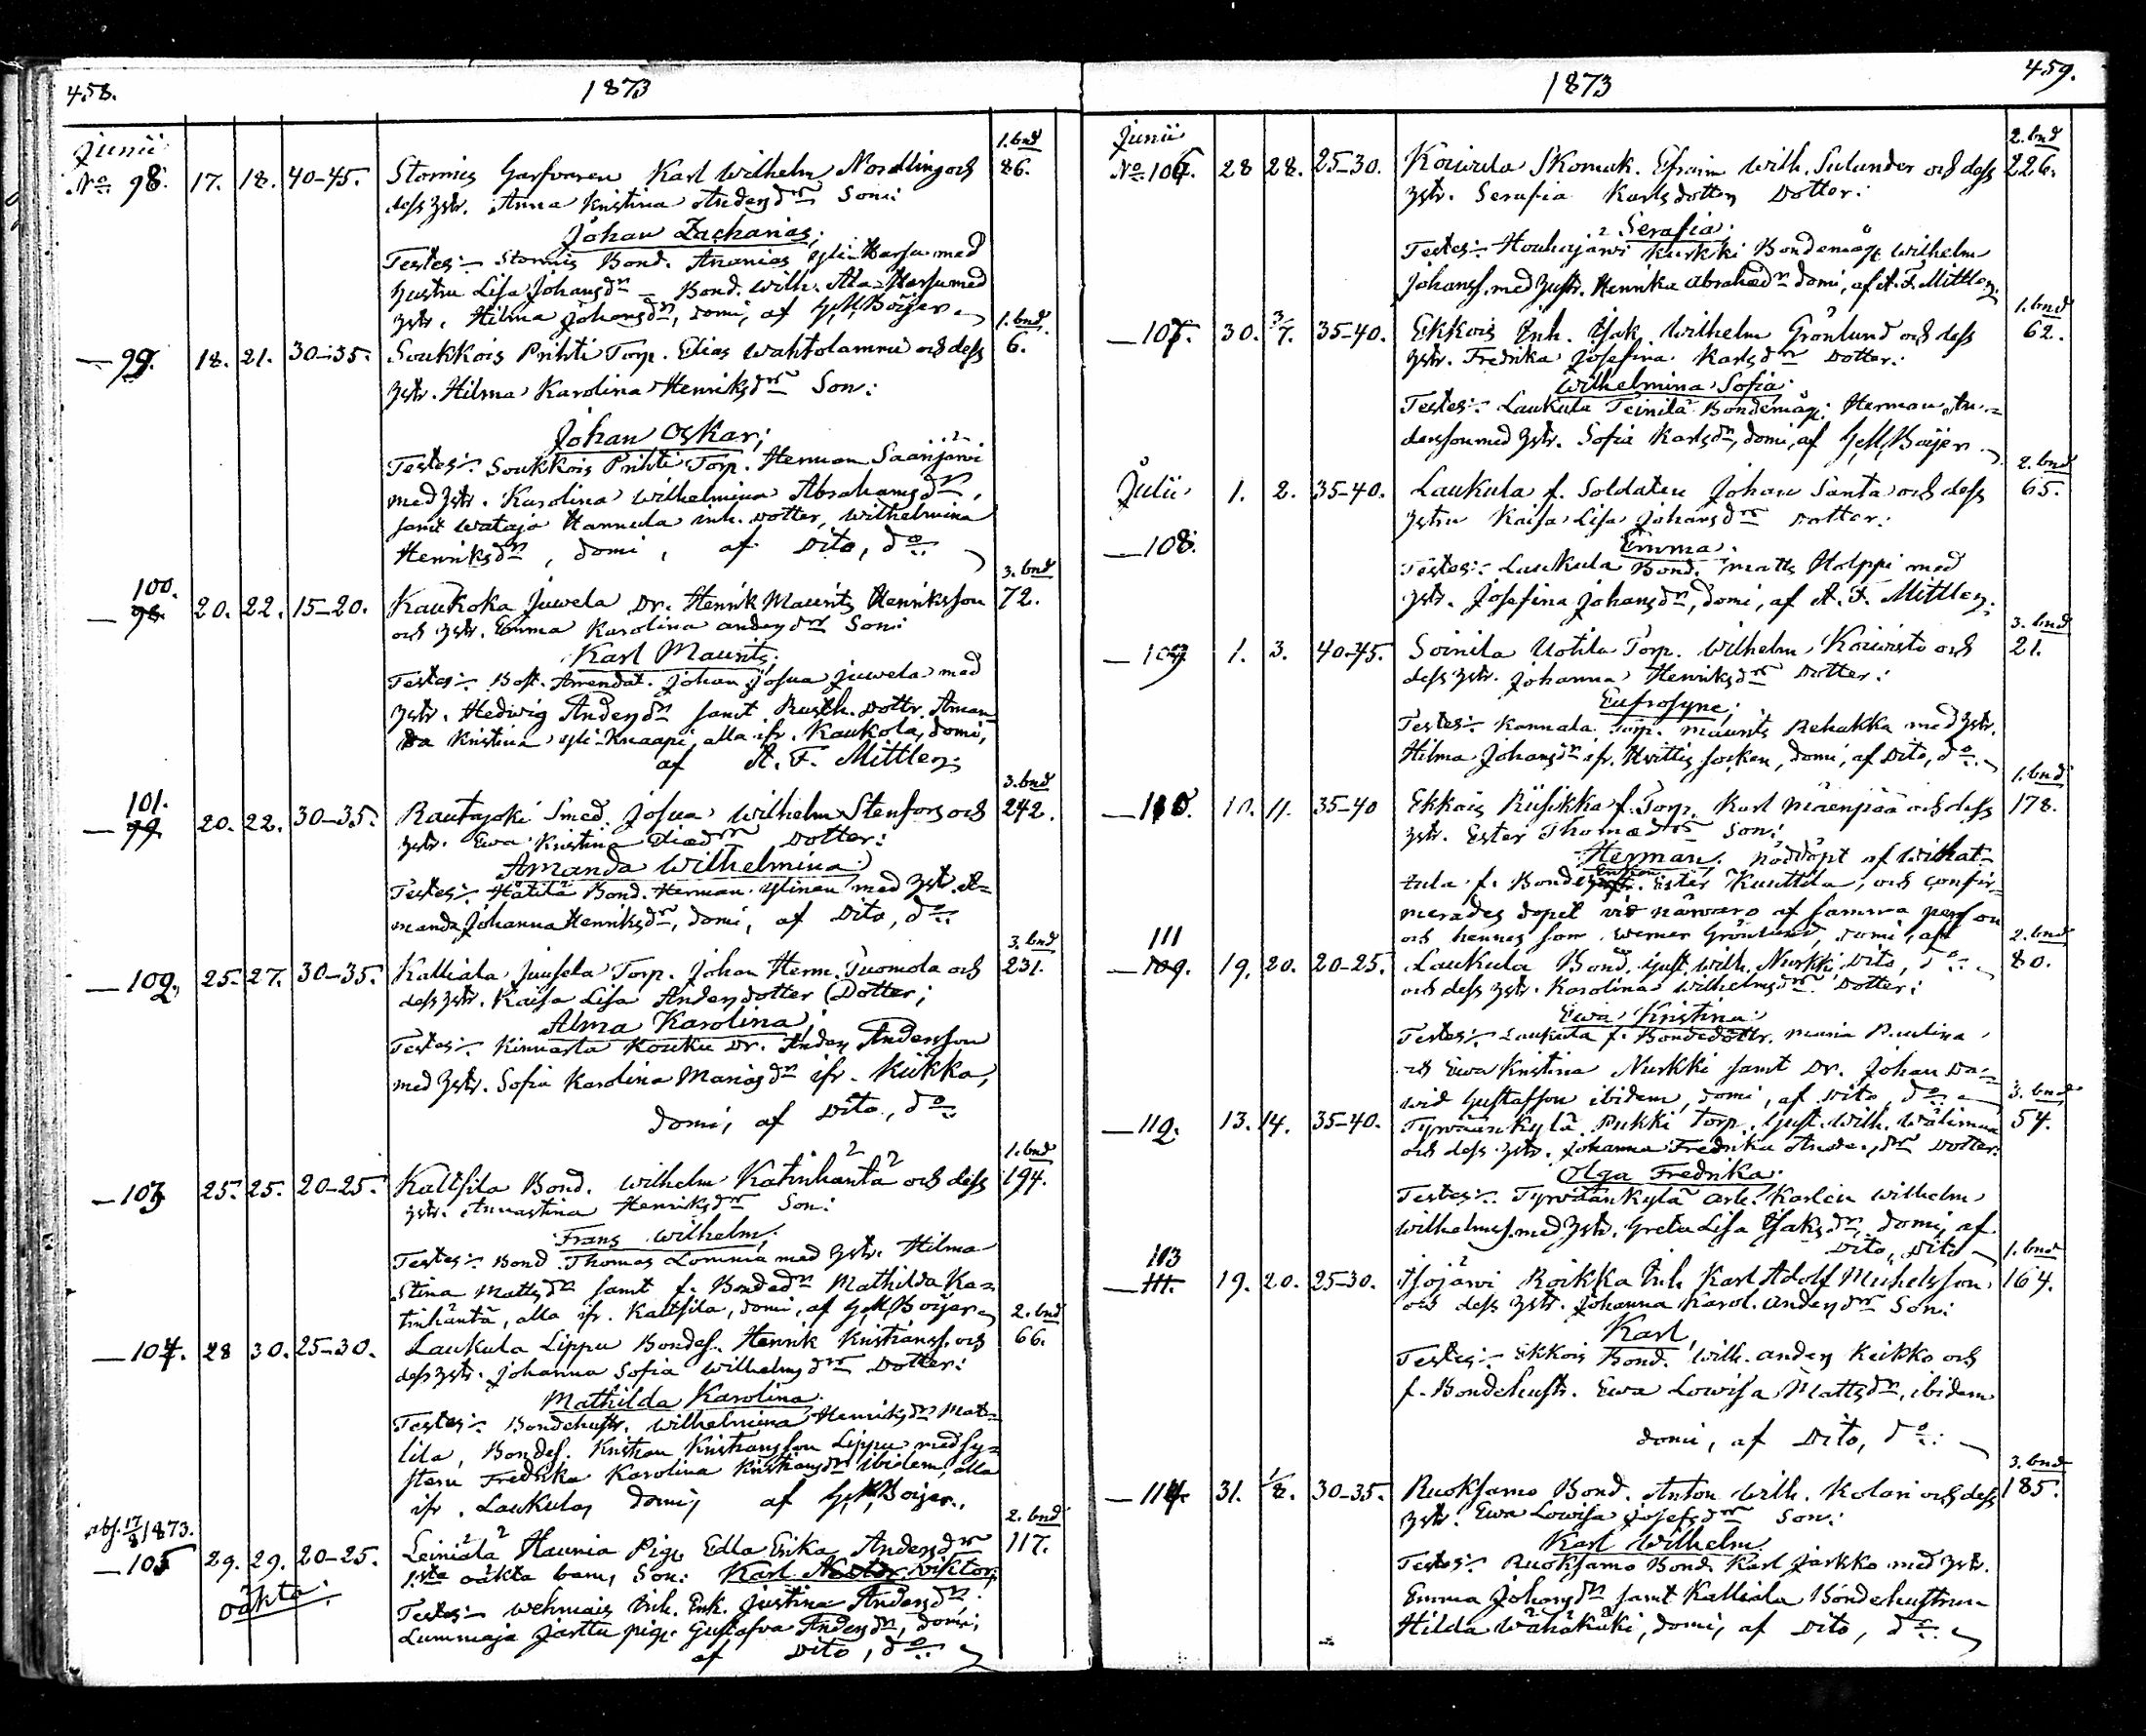 458. 1873
Junii 1. bnd
No 98. 17. 18. 40-45. Stormis Garfvaren Karl Wilhelm Nordling och 86.
dess hstr. Anna Kristina Andersdr Son:
Johan Zacharias;
Testes:- Stormis Bond. Ananias Yli-Harju med
hustru Lisa Johansdr - Bond. Wilh. Ala-Harju med
hstr. Hilma Johansdr, domi, af G. M. Boijer
1. bnd
— 99. 18. 21. 30-35. Soukkois Prihti Torp. Elias Wahtolammi och dess 6.
hstr. Hilma Karolina Henriksdr Son:
Johan Oskar;
Testes:- Soukkois Prihti Torp. Herman Saarijärvi
med hstr. Karolina Wilhelmina Abrahamsdr,
samt Wataja Hannula inh. dotter, Wilhelmina
Henriksdr, domi, af Dito, do
100. 3. bnd
— 98. 20. 22. 15-20. Kaukola Juwela Dr. Henrik Maurits Henriksson 72.
och hstr. Emma Karolina Andersdr Son:
Karl Maurits;
Testes:- Bost. Arrendat. Johan Josua Juwela med
hstr. Hedwig Andersdr samt Rusth. dottr. Aman-
da Kristina Yli-Knaapi, alla ifr. Kaukola, domi,
af A. F. Mittler
101. 3. bnd
— 99. 20. 22. 30-35. Rautajoki Smed. Josua Wilhelm Stenfors och 242.
hstr. Ewa Kristina Eliædr Dotter:
Amanda Wilhelmina
Testes:- Häätilä Bond. Herman Ylinen med hstr. A-
manda Johanna Henriksdr, domi, af Dito, do
3. bnd
— 102. 25. 27. 30-35. Kalliala Juusela Torp. Johan Herm. Tuomola och 231.
dess hstr. Kaisa Lisa Andersdotter Dotter;
Alma Karolina;
Testes:- Kinnarla Kouku Dr. Anders Andersson
med hstr. Sofia Karolina Mariasdr ifr. Kiikka,
domi, af Dito, do
1. bnd
— 103 25. 25. 20-25. Kaltsila Bond. Wilhelm Katinhäntä och dess 194.
hstr. Annastina Henriksdr Son:
Frans Wilhelm;
Testes:- Bond. Thomas Lomma med hstr. Hilma
Stina Mattsdr samt f. Bondedr Mathilda Ka-
tinhäntä, alla ifr. Kaltsila, domi, af G. M. Boijer
2. bnd
— 104. 28 30. 25-30. Laukula Lippu Bondes. Henrik Kristianss. och 66.
dess hstr. Johanna Sofia Wilhelmsdr Dotter:
Mathilda Karolina.
Testes:- Bondehustr. Wilhelmina Henriksdr Mat-
tila, Bondes. Kristian Kristiansson Lippu med sy-
stern Fredrika Karolina Kristiansdr ibidem, alla
ifr. Laukula, domi, af G. M. Boijer.
abs. 17/8 1873. 2. bnd
— 105 29. 29. 20-25. Leiniälä Haunia Pig. Edla Erika Andersdr 117.
oäkta: 1sta oäkta barn, Son: Karl Viktor;
Testes:- Wehmais Inh. Enk. Justina Andersdr:
Lummaja Jarttu pig. Gustafva Andersdr, domi;
af Dito, do

1873 459.
Junii 2. bnd
No 106. 28 28. 25-30. Koiwula Skomak. Efraim Wilh. Sulander och dess 226.
hstr. Serafia Karlsdotter Dotter:
Serafia:
Testes:- Houhajärwi Kurkki Bondemåg Wilhelm
Johanss. med hustr. Henrika Abrahædr domi, af A. F. Mittler
1. bnd
— 107. 30. 3/7. 35-40. Ekkois Inh. Isak Wilhelm Grönlund och dess 62.
hstr. Fredrika Josefina Karlsdr Dotter:
Wilhelmina Sofia:
Testes:- Laukula Teinilä Bondemåg: Herman An-
dersson med hstr. Sofia Karlsdr, domi, af G. M. Boijer
2. bnd
Julii 1. 2. 35-40. Laukula f. Soldaten Johan Santa och dess 65.
hstru Kaisa Lisa Johansdr Dotter:
— 108. Emma:
Testes:- Laukula Bond. Matts Holppi med
hstr. Josefina Johansdr, domi, af A. F. Mittler.
3. bnd
— 109 1. 3. 40-45. Soinila Uotila Torp. Wilhelm Koiwisto och 21.
dess hstr. Johanna Henriksdr Dotter:
Eufrosyne;
Testes:- Kannala Torp. Maurits Rehakka med hstr.
Hilma Johansdr ifr. Hvittis socken, domi, af Dito, do
1. bnd
— 110. 10. 11. 35-40 Ekkois Riisikka f. Torp. Karl Mäenpää och dess 178.
hstr. Ester Thomædr Son:
Herman; nöddöpt af Wihat-
tula f. Bonde Enkan Ester Kuuttila, och confir-
merades dopet vid närvaro af samma person
och hennes son Werner Grönlund, domi, af
111 Dito, do 2. bnd
— 109. 19. 20. 20-25. Laukula Bond. Gust. Wilh. Nurkki 80.
och dess hstr. Karolina Wilhelmsdr Dotter:
Ewa Kristina:
Testes:- Laukula f. Bondedöttr. Maria Paulina
och Ewa Kristina Nurkki samt Dr. Johan Da-
wid Gustafsson ibidem, domi, af Dito, do
3. bnd
— 112. 13. 14. 35-40. Tyrwäänkylä Pukki Torp. Gust. Wilh. Wälimaa 54.
och dess hstr. Johanna Fredrika Andersdr Dotter:
Olga Fredrika:
Testes:- Tyrwäänkylä arb. Karlen Wilhelm
Wilhelmss. med hstr. Greta Lisa Isaksdr, domi, af
Dito, Dito
113 1. bnd
— 111. 19. 20. 25-30. Isojärwi Roikka Inh. Karl Adolf Michelsson 164.
och dess hstr. Johanna Karol. Andersdr Son:
Karl,
Testes:- Ekkois Bond. Wilh. Anders Keikko och
f. Bondehustr. Ewa Lowisa Mattsdr, ibidem
domi, af Dito, do:
3. bnd
— 114. 31. 1/8. 30-35. Ruoksamo Bond. Anton Wilh. Kolari och dess 185.
hstr. Ewa Lowisa Josefsdr Son:
Karl Wilhelm
Testes:- Ruoksamo Bond. Karl Jarkko med hstr.
Emma Johansdr samt Kalliala Bondehustrun
Hilda Wähäkäki, domi, af Dito, do